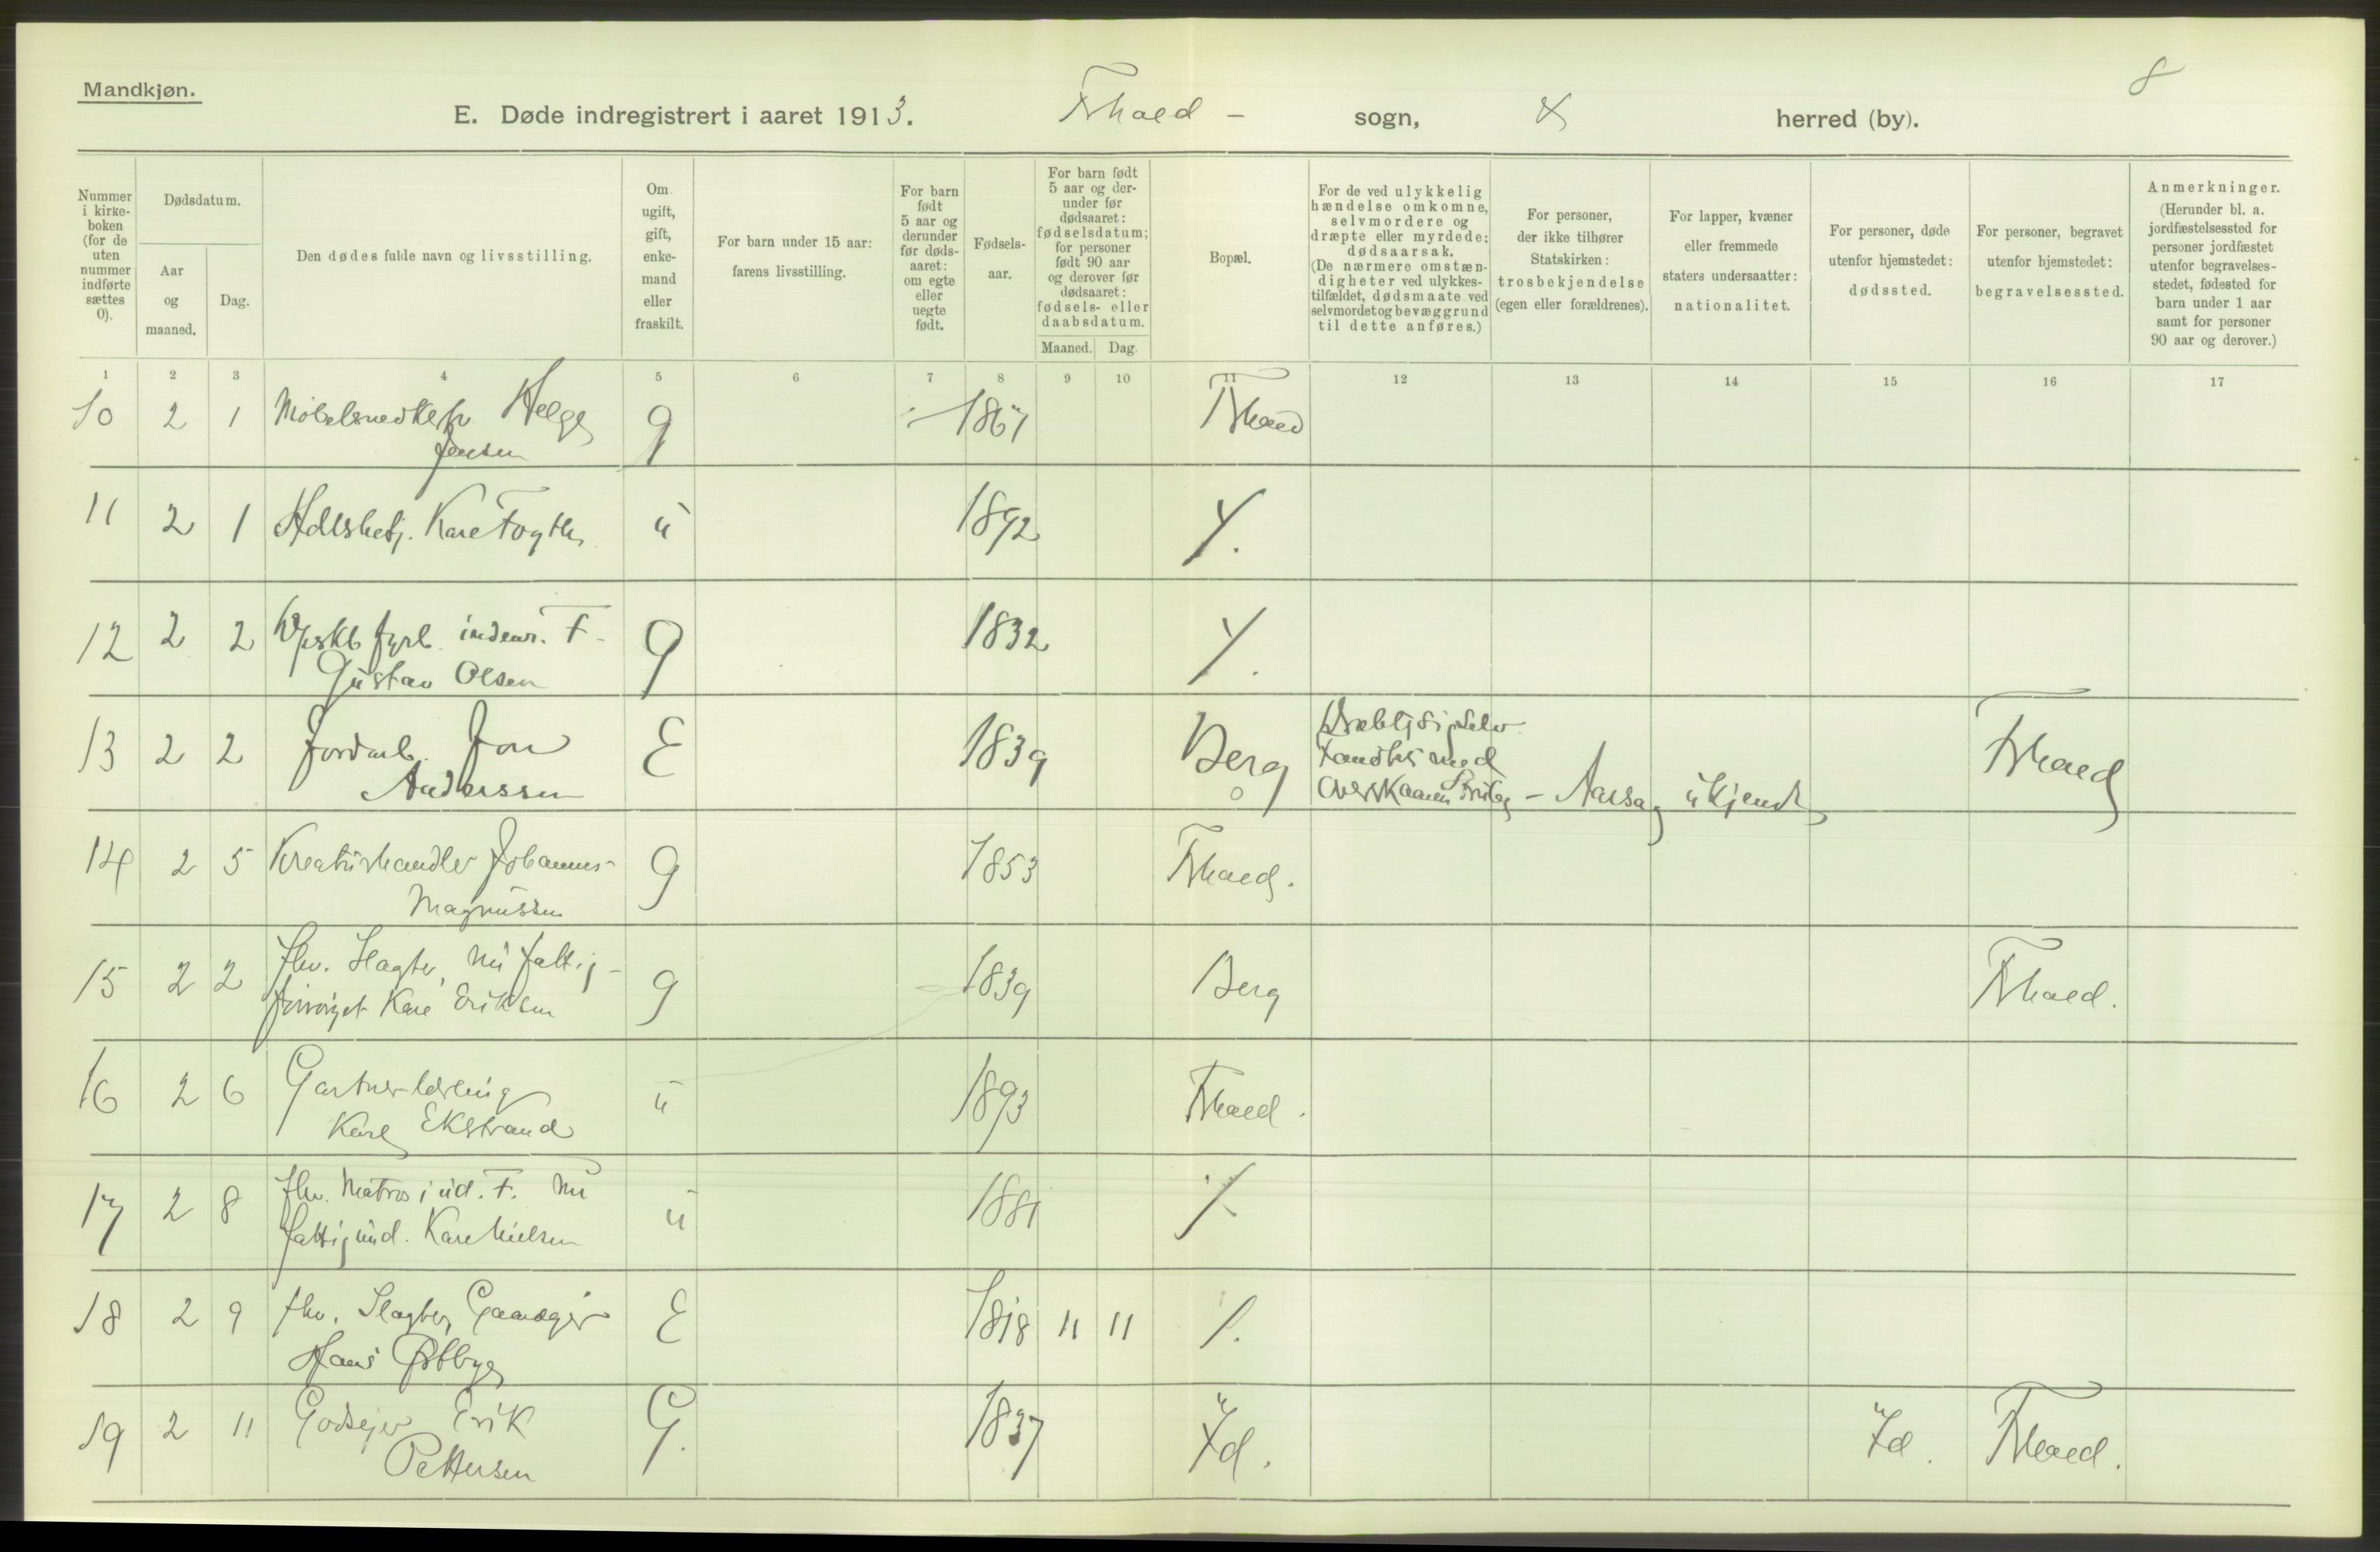 8
Mandkjøn.
E. Døde indregistrert i aaret 1913. Fhald - sogn, herred (by).
Nummer i kirkeboken (for de uten nummer indførte sættes 0).
Dødsdatum.
Aar og maaned.
Dag.
Den dødes fulde navn og livsstilling.
Om ugift, gift, enkemand eller fraskilt.
For barn under 15 aar: farens livsstilling.
For barn født 5 aar og derunder før dødsaaret: om egte eller uegte født.
Fødselsaar.
For barn født 5 aar og derunder før dødsaaret: fødselsdatum; for personer født 90 aar og derover før dødsaaret: fødsels- eller daabsdatum.
Maaned. Dag.
Bopæl.
For de ved ulykkelig hændelse omkomne, selvmordere og dræpte eller myrdede: dødsaarsak. (De nærmere omstændigheter ved ulykkestilfældet, dødsmaate ved selvmordet og bevæggrund til dette anføres.)
For personer, der ikke tilhører Statskirken: trosbekjendelse (egen eller forældrenes).
For lapper, kvæner eller fremmede staters undersaatter: nationalitet.
For personer, døde utenfor hjemstedet: dødssted.
For personer, begravet utenfor hjemstedet: begravelsessted.
Anmerkninger. (Herunder bl. a. jordfæstelsessted for personer jordfæstet utenfor begravelsesstedet, fødested for barn under 1 aar samt for personer 90 aar og derover.)
1 2 3 4 5 6 7 8 9 10 11 12 13 14 15 16 17
10 2 1 Møbelsnedker Helge g 1867 Fhald
Jensen
11 2 1 Hdlsbetj. Karl Fogth u 1892
12 2 2 fyrb. indenr. F. g 1832
Gustav Olsen
13 2 2 Jordarb. Jon E 1839 Berg Dræbt sig selv Fhald
Anderssen fandtes med
overskaaren Strube - Aarsag ukjendt
14 2 5 Kreaturhandler Johannes g 1853 Fhald.
Magnussen
15 2 2 fhv. Slagter, nu fattig- g 1839 Berg Fhald.
forsørget Karl Eriksen
16 2 6 Gartnerlærling u 1893 Fhald.
Karl Ekstrand
17 2 8 fhv. Matros i ud. F. nu u 1881
fattigund. Karl Nielsen
18 2 9 fhv. Slagter, Gaardejer E 1818 11 11
Hans Østbye
19 2 11 Godsejer Erik G. 1837 Id. Id. Fhald.
Pettersen